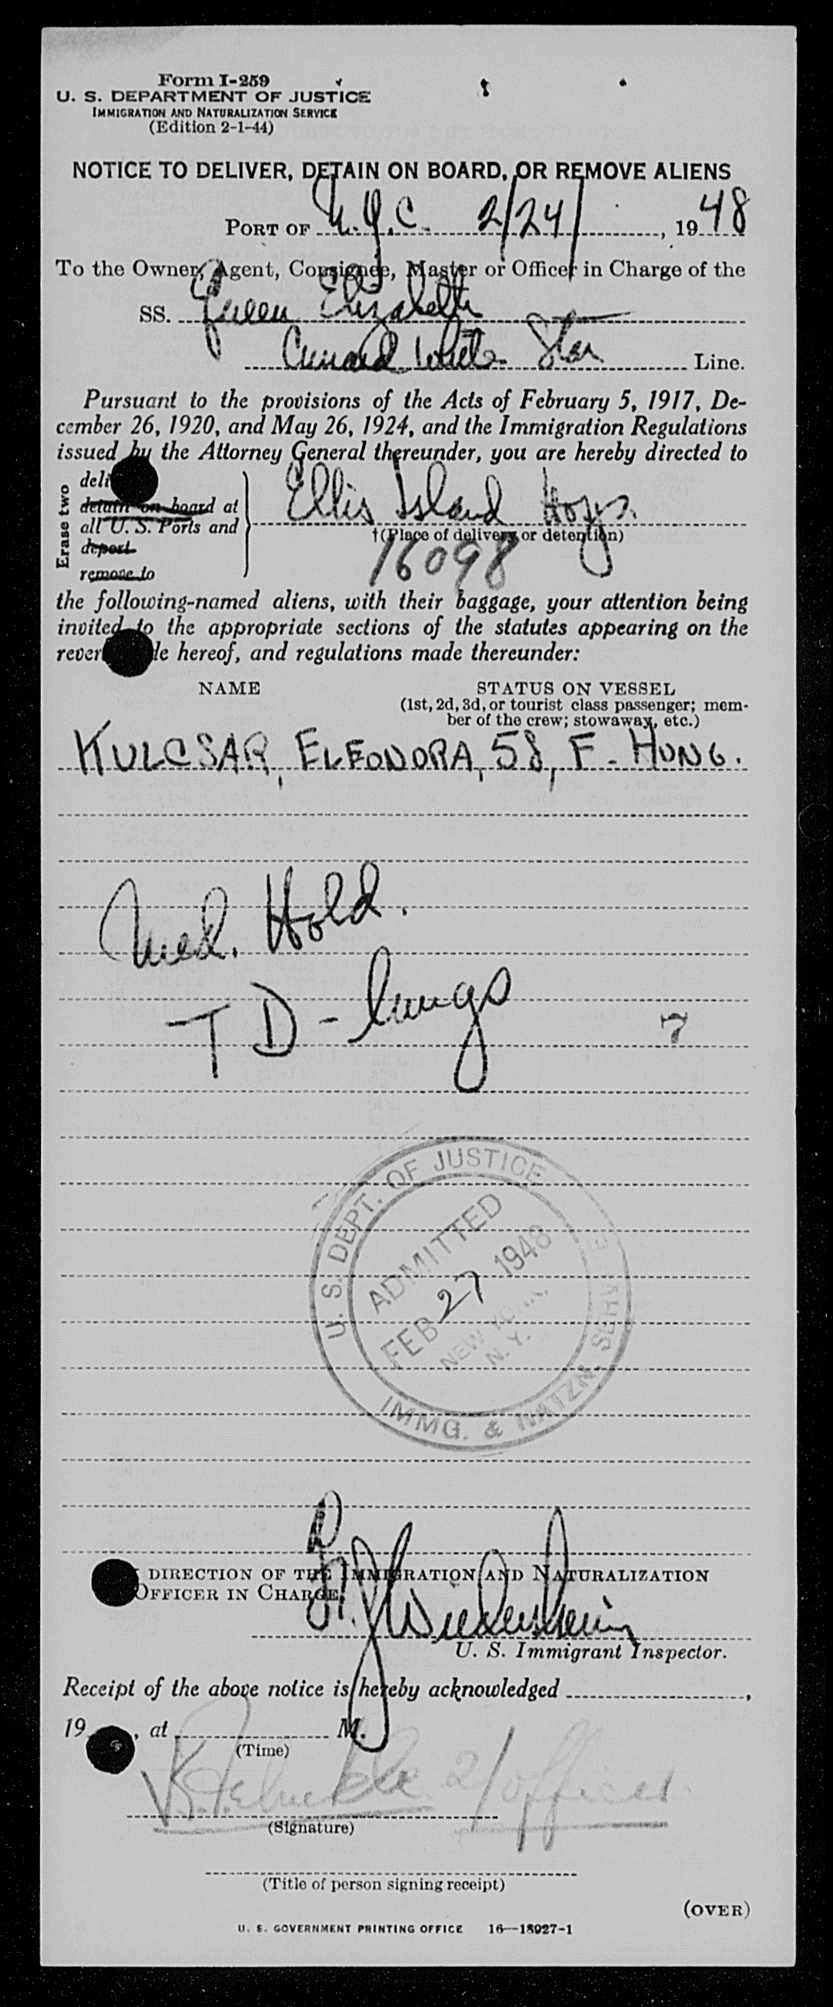 Form I-259
U. S. DEPARTMENT OF JUSTICE
IMMIGRATION AND NATURALIZATION SERVICE
(Edition 2-1-44)
NOTICE TO DELIVER, DETAIN ON BOARD, OR REMOVE ALIENS
PORT OF N.Y.C. 2/24/, 1948
To the Owner, Agent, Consignee, Master or Officer in Charge of the
SS. Queen Elizabeth
Cunard White Star Line.
Pursuant to the provisions of the Acts of February 5, 1917, De-
cember 26, 1920, and May 26, 1924, and the Immigration Regulations
issued by the Attorney General thereunder, you are hereby directed to
Erase two
deli
detain on board at
all U. S. Ports and
deport
remove to
Ellis Island Hosp.
†(Place of delivery or detention)
16098
the following-named aliens, with their baggage, your attention being
invited to the appropriate sections of the statutes appearing on the
rever le hereof, and regulations made thereunder:
NAME STATUS ON VESSEL
(1st, 2d, 3d, or tourist class passenger; mem-
ber of the crew; stowaway, etc.)
KULCSAR, ELEONORA, 58, F - HUNG.
Med. Hold.
TD - lungs
7
U. S. DEPT. OF JUSTICE
ADMITTED
FEB 27 1948
NEW YORK,
N. Y.
IMMG. & NATZN. SERV
DIRECTION OF THE IMMIGRATION AND NATURALIZATION
OFFICER IN CHARGE
U. S. Immigrant Inspector.
Receipt of the above notice is hereby acknowledged ,
19 , at M.
(Time)
2/officer
(Signature)
(Title of person signing receipt)
(OVER)
U. S. GOVERNMENT PRINTING OFFICE 16—18927-1